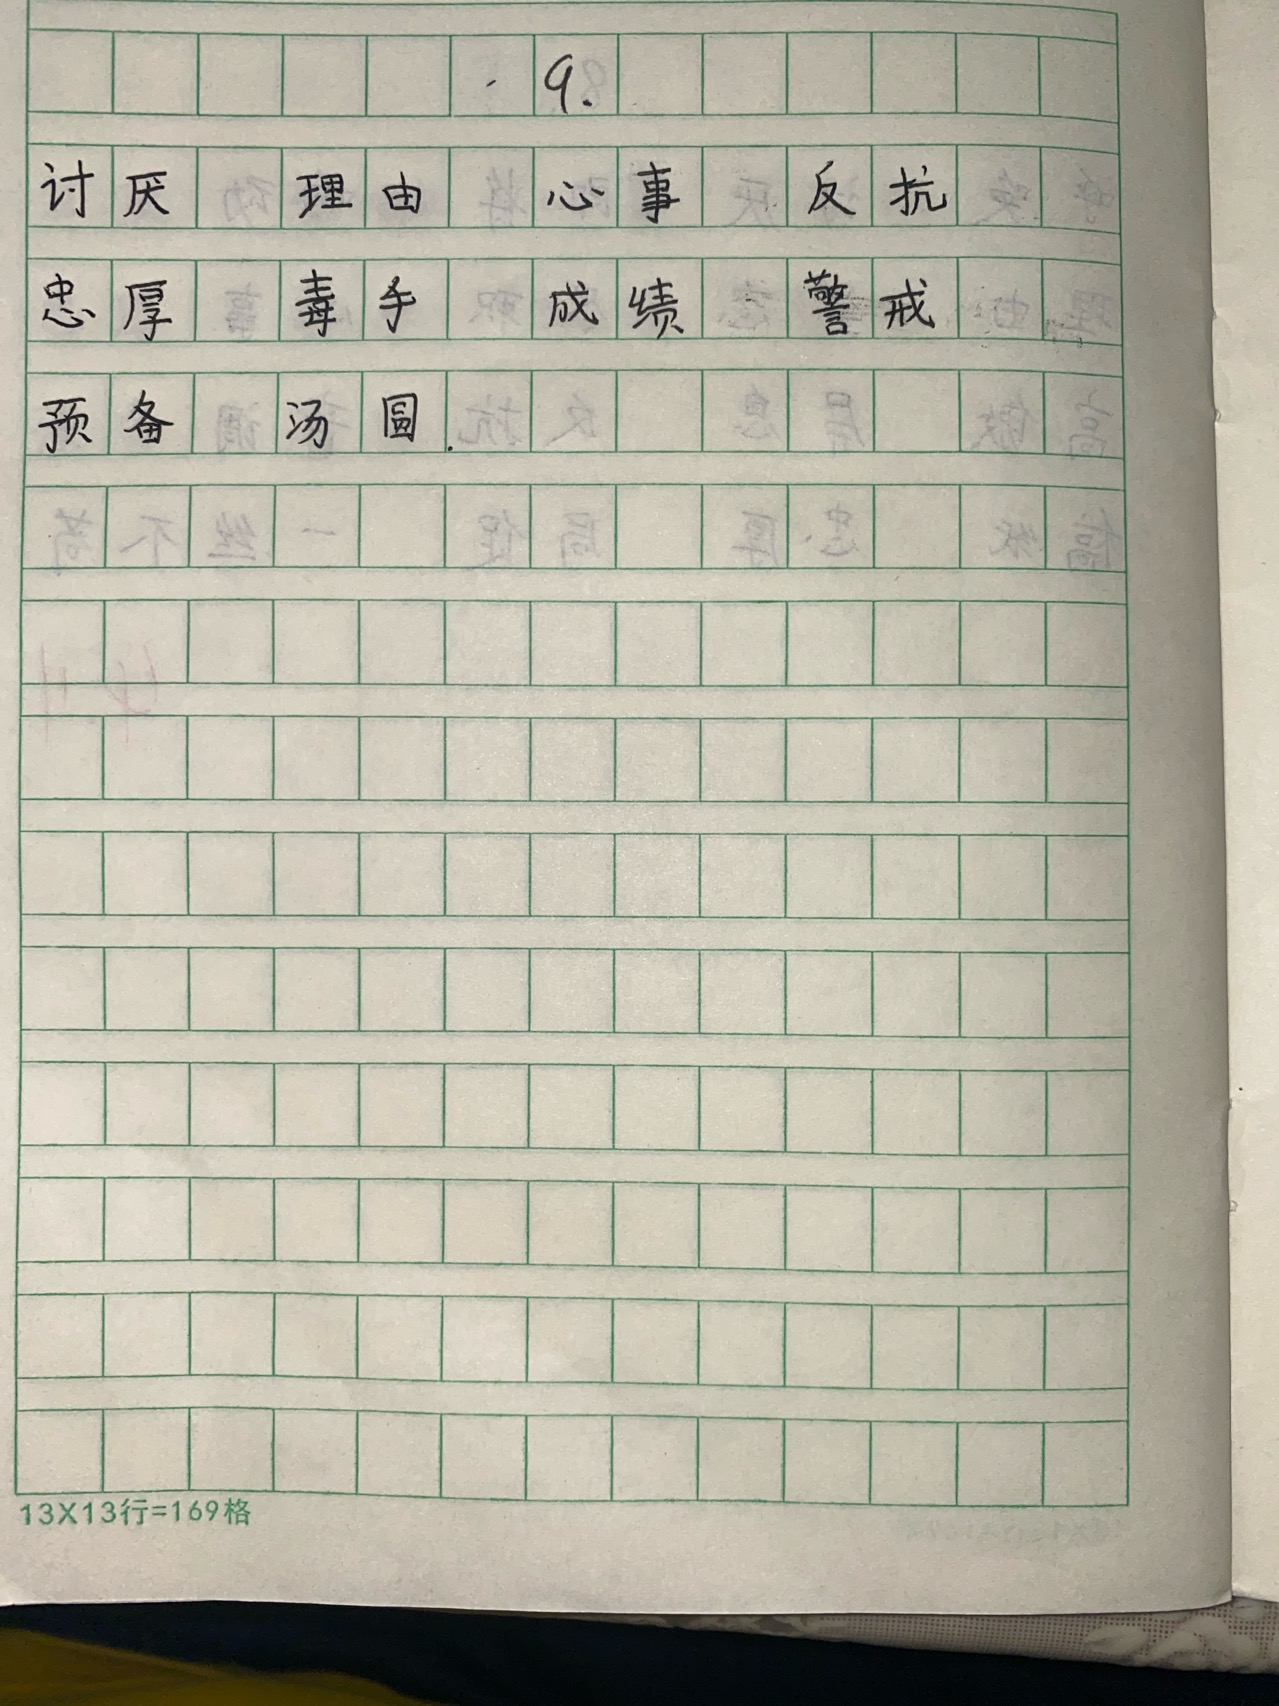 9.
讨厌 理由 心事 反抗
忠厚 毒手 成绩 警戒
预备 汤圆.
13X13行=169格